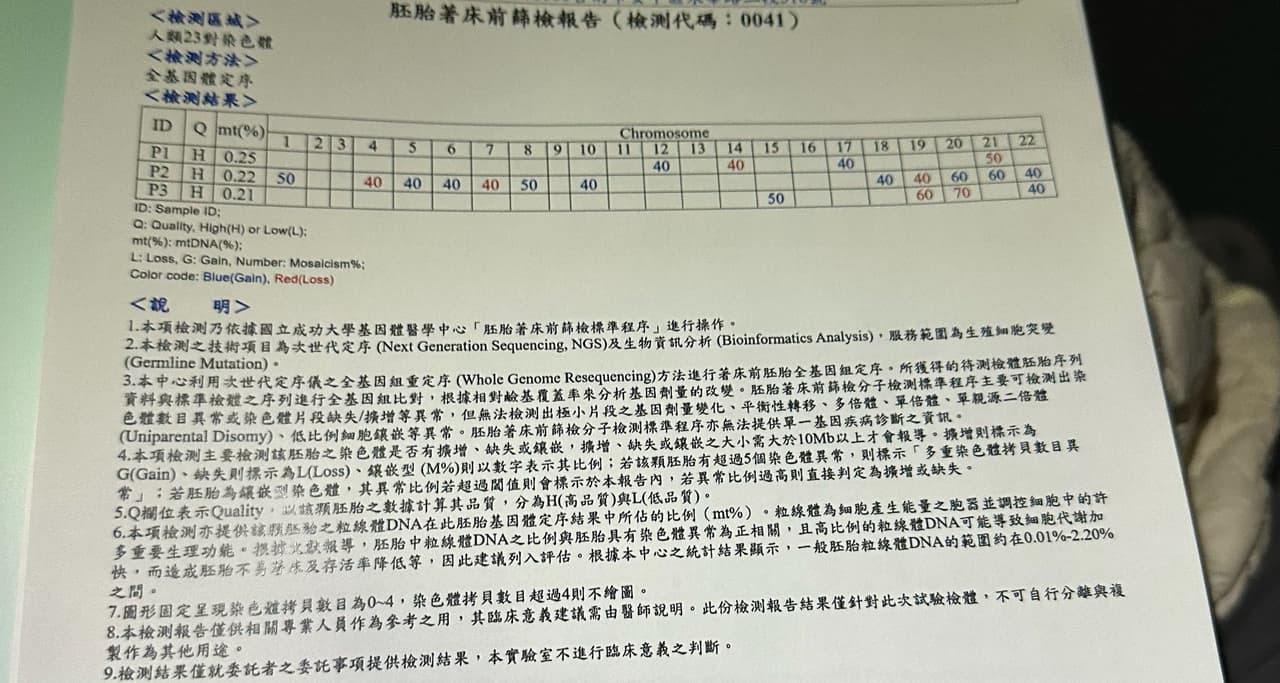 <檢測區域>
胚胎著床前篩檢報告（檢測代碼：0041）
人類23對染色體
<檢測方法>
全基因體定序
<檢測結果>
ID Q mt(%) Chromosome
1 2 3 4 5 6 7 8 9 10 11 12 13 14 15 16 17 18 19 20 21 22
P1 H 0.25 40 40 40 50
P2 H 0.22 50 40 40 40 40 50 40 40 40 60 60 40
P3 H 0.21 50 60 70 40
ID: Sample ID;
Q: Quality, High(H) or Low(L);
mt(%): mtDNA(%);
L: Loss, G: Gain, Number: Mosaicism%;
Color code: Blue(Gain), Red(Loss)
<說 明>
1.本項檢測乃依據國立成功大學基因體醫學中心「胚胎著床前篩檢標準程序」進行操作。
2.本檢測之技術項目為次世代定序 (Next Generation Sequencing, NGS)及生物資訊分析 (Bioinformatics Analysis)，服務範圍為生殖細胞突變
(Germline Mutation)。
3.本中心利用次世代定序儀之全基因組重定序 (Whole Genome Resequencing)方法進行著床前胚胎全基因組定序。所獲得的待測檢體胚胎序列
資料與標準檢體之序列進行全基因組比對，根據相對鹼基覆蓋率來分析基因劑量的改變。胚胎著床前篩檢分子檢測標準程序主要可檢測出染
色體數目異常或染色體片段缺失/擴增等異常，但無法檢測出極小片段之基因劑量變化、平衡性轉移、多倍體、單倍體、單親源二倍體
(Uniparental Disomy)、低比例細胞鑲嵌等異常。胚胎著床前篩檢分子檢測標準程序亦無法提供單一基因疾病診斷之資訊。
4.本項檢測主要檢測該胚胎之染色體是否有擴增、缺失或鑲嵌，擴增、缺失或鑲嵌之大小需大於10Mb以上才會報導。擴增則標示為
G(Gain)、缺失則標示為L(Loss)、鑲嵌型 (M%)則以數字表示其比例；若該顆胚胎有超過5個染色體異常，則標示「多重染色體拷貝數目異
常」；若胚胎為鑲嵌型染色體，其異常比例若超過閾值則會標示於本報告內，若異常比例過高則直接判定為擴增或缺失。
5.Q欄位表示Quality，以該顆胚胎之數據計算其品質，分為H(高品質)與L(低品質)。
6.本項檢測亦提供該顆胚胎之粒線體DNA在此胚胎基因體定序結果中所佔的比例（mt%）。粒線體為細胞產生能量之胞器並調控細胞中的許
多重要生理功能。根據文獻報導，胚胎中粒線體DNA之比例與胚胎具有染色體異常為正相關，且高比例的粒線體DNA可能導致細胞代謝加
快，而造成胚胎不易著床及存活率降低等，因此建議列入評估。根據本中心之統計結果顯示，一般胚胎粒線體DNA的範圍約在0.01%-2.20%
之間。
7.圖形固定呈現染色體拷貝數目為0~4，染色體拷貝數目超過4則不繪圖。
8.本檢測報告僅供相關專業人員作為參考之用，其臨床意義建議需由醫師說明。此份檢測報告結果僅針對此次試驗檢體，不可自行分離與複
製作為其他用途。
9.檢測結果僅就委託者之委託事項提供檢測結果，本實驗室不進行臨床意義之判斷。